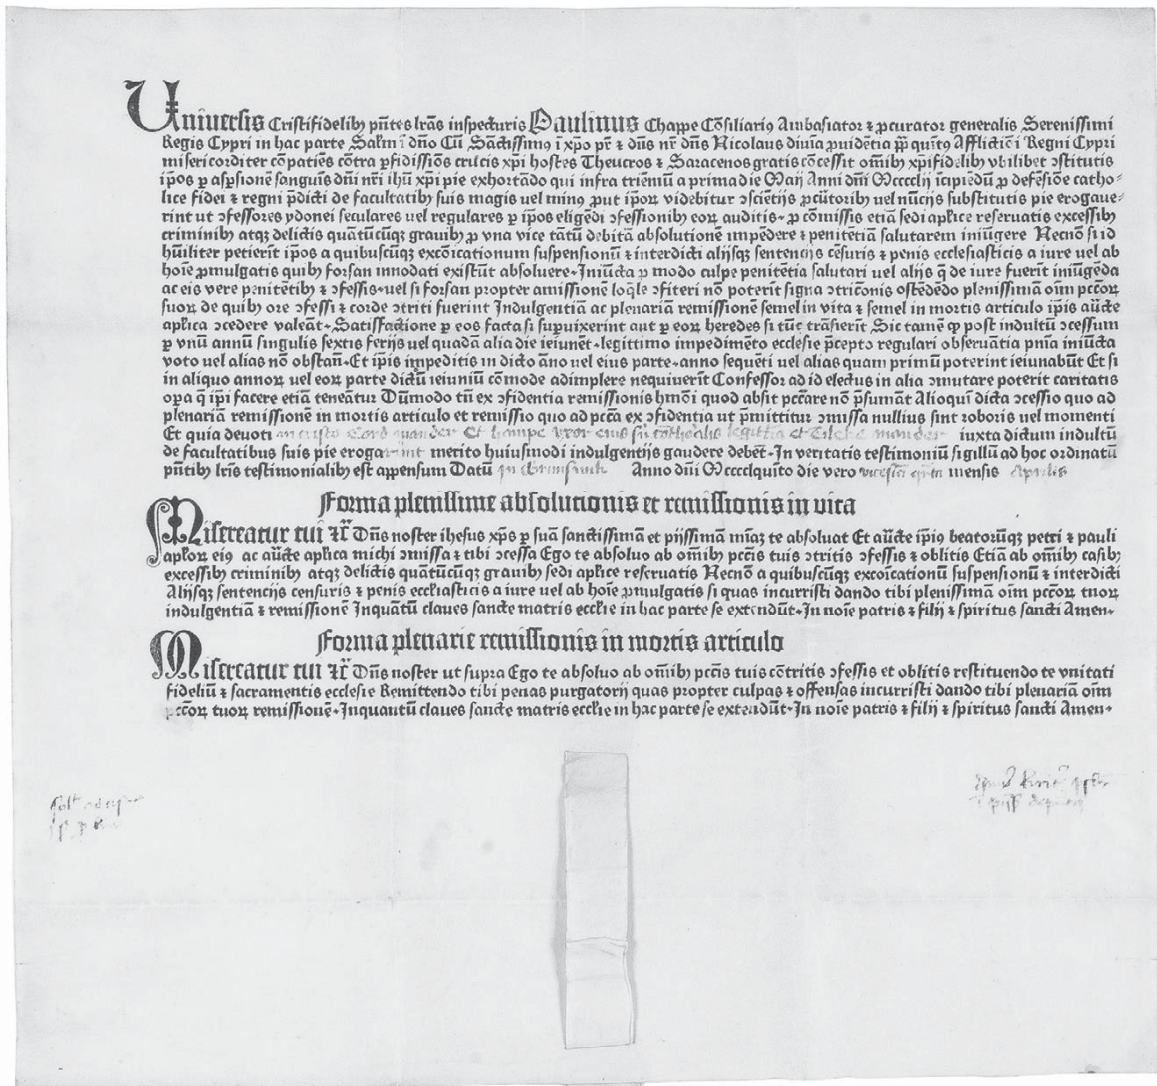 Universis Cristifidelibꝫ pn̄tes lr̄as inspecturis Paulinus Chappe Cōsiliariꝰ Ambasiator ⁊ ꝓcurator generalis Serenissimi
Regis Cypri in hac parte Salt̄m ī dn̄o Cū Sāctissimꝰ ī xp̄o pr̄ ⁊ dn̄s nr̄ dn̄s Nicolaus diuīa ꝓuidētia pp̄ qn̄tꝰ Afflictiōī Regni Cypri
misericorditer cōpatiēs cōtra ꝑfidissiōs crucis xp̄i hostes Theucros ⁊ Saracenos gratis cōcessit om̄ibꝫ xp̄ifidelibꝫ vbilibet ↄstitutis
ip̄os ꝑ asꝑsionē sanguīs dn̄i nr̄i ihū xp̄i pie exhortādo qui infra triēniū a prima die Maij Anni dn̄i Mcccclij īcipiēdū ꝓ defēsiōe catho-
lice fidei ⁊ regni p̄dicti de facultatibꝫ suis magis uel minꝰ ꝓut ip̄oꝝ videbitur ↄsciētijs ꝓcūtoribꝫ uel nūcijs substitutis pie erogaue-
rint ut ↄfessores ydonei seculares uel regulares ꝑ ip̄os eligēdi ↄfessionibꝫ eoꝝ auditis· ꝓ cōmissis etiā sedi apl̄ice reservatis excessibꝫ
criminibꝫ atqꝫ delictis quātūcūqꝫ gravibꝫ ꝓ vna vice tātū debitā absolutionē impēdere ⁊ penitētiā salutarem iniūgere Necnō si id
hūiliter petierīt ip̄os a quibuscūqꝫ excōicationum suspensionū ⁊ interdicti alijsqꝫ sentencijs cēsuris ⁊ penis ecclesiasticis a iure uel ab
hoīe ꝓmulgatis quibꝫ forsan innodati existūt absoluere· Iniūcta ꝓ modo culpe penitētia salutari uel alijs q̄ de iure fuerīt iniūgēda
ac eis vere penitētibꝫ ⁊ ↄfessis· uel si forsan propter amissionē loq̄le ↄfiteri nō poterīt signa ↄtriciōnis ostēdēdo plenissimā oīm pcc̄oꝝ
suoꝝ de quibꝫ ore ↄfessi ⁊ corde ↄtriti fuerint Indulgentiā ac plenariam remissionē semel in vita ⁊ semel in mortis articulo ip̄is auct̄e
apl̄ica ↄcedere valeāt· Satisfactione ꝑ eos facta si suꝑuixerint aut ꝑ eoꝝ heredes si tūc trāsierīt Sic tamē ꝙ post indultū ↄcessum
ꝑ vnū annū singulis sextis ferijs uel quadā alia die ieiunēt· legittimo impedimēto ecclesie p̄cepto regulari obseruātia pn̄ia iniūcta
voto uel alias nō obstan̄· Et ip̄is impeditis in dicto āno uel eius parte· anno sequēti uel alias quam primū poterint ieiunabūt Et si
in aliquo annoꝝ uel eoꝝ parte dictū ieiuniū cōmode adimplere nequiuerīt Confessor ad id electus in alia ↄmutare poterit caritatis
oꝑa q̄ ip̄i facere etiā teneātur Dūmodo tn̄ ex ↄfidentia remissionis hm̄oi quod absit pcc̄are nō p̄sumāt Alioqui dicta ↄcessio quo ad
plenariam remissionē in mortis articulo et remissio quo ad pcc̄a ex ↄfidentia ut p̄mittitur ↄmissa nullius sint roboris uel momenti
Et quia devoti iuxta dictum indultū
de facultatibus suis pie erogarint merito huiusmodi indulgentijs gaudere debēt· In veritatis testimoniū sigillū ad hoc ordinatū
pn̄tibꝫ lr̄is testimonialibꝫ est appensum Datū in Brunswik Anno dn̄i Mccccl quinto die vero mensis Aprilis
Forma plenissime absolutionis et remissionis in vita
Misereatur tui ⁊c̄ Dn̄s noster ihesus xp̄s ꝑ suā sanctissimā et pijssimā mīaꝫ te absoluat Et auct̄e ip̄iꝰ beatorūqꝫ petri ⁊ pauli
apl̄oꝝ eiꝰ ac auct̄e apl̄ica michi ↄmissa ⁊ tibi ↄcessa Ego te absoluo ab om̄ibꝫ pcc̄is tuis ↄtritis ↄfessis ⁊ oblitis Etiā ab om̄ibꝫ casibꝫ
excessibꝫ criminibꝫ atqꝫ delictis quātūcūqꝫ gravibꝫ sedi apl̄ice reservatis Necnō a quibuscūqꝫ excoīcationū suspensionū ⁊ interdicti
Alijsqꝫ sentencijs censuris ⁊ penis eccl̄iasticis a iure uel ab hoīe ꝓmulgatis si quas incurristi dando tibi plenissimā oīm pcc̄oꝝ tuoꝝ
indulgentiā ⁊ remissionē Inquātū claves sancte matris eccl̄ie in hac parte se extendūt· In noīe patris ⁊ filij ⁊ spiritus sancti Amen·
Forma plenarie remissionis in mortis articulo
Misereatur tui ⁊c̄ Dn̄s noster ut supra Ego te absoluo ab om̄ibꝫ pcc̄is tuis cōtritis ↄfessis et oblitis restituendo te vnitati
fideliū ⁊ sacramentis ecclesie Remittendo tibi penas purgatorij quas propter culpas ⁊ offensas incurristi dando tibi plenariā oīm
pcc̄oꝝ tuoꝝ remissionē· Inquantū claues sancte matris eccl̄ie in hac parte se extendūt· In noīe patris ⁊ filij ⁊ spiritus sancti Amen·